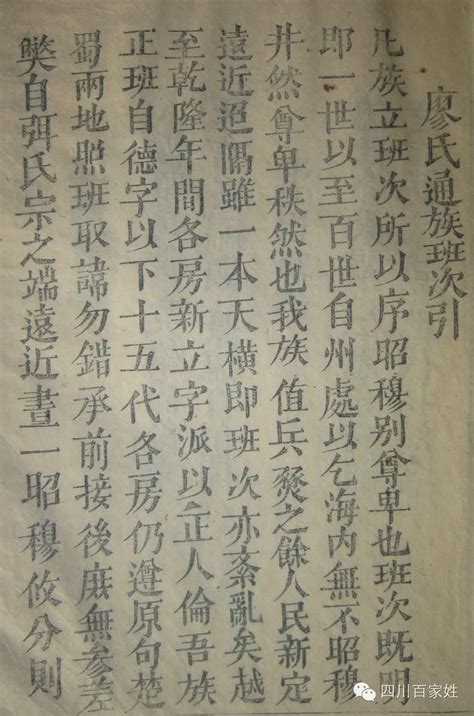 廖氏通族班次引
凡族立班次所以序昭穆别尊卑也班次既明
即一世以至百世自州處以乞海内無不昭穆
井然尊卑秩然也我族值兵燹之餘人民新定
遠近迢隔雖一本天横即班次亦紊亂矣越
至乾隆年間各房新立字派以正人倫吾族
正班自德字以下十五代各房仍遵原句楚
蜀兩地照班取諱勿錯承前接後庶無參差
樊自弭氏宗之端遠近畫一昭穆攸分則
四川百家姓